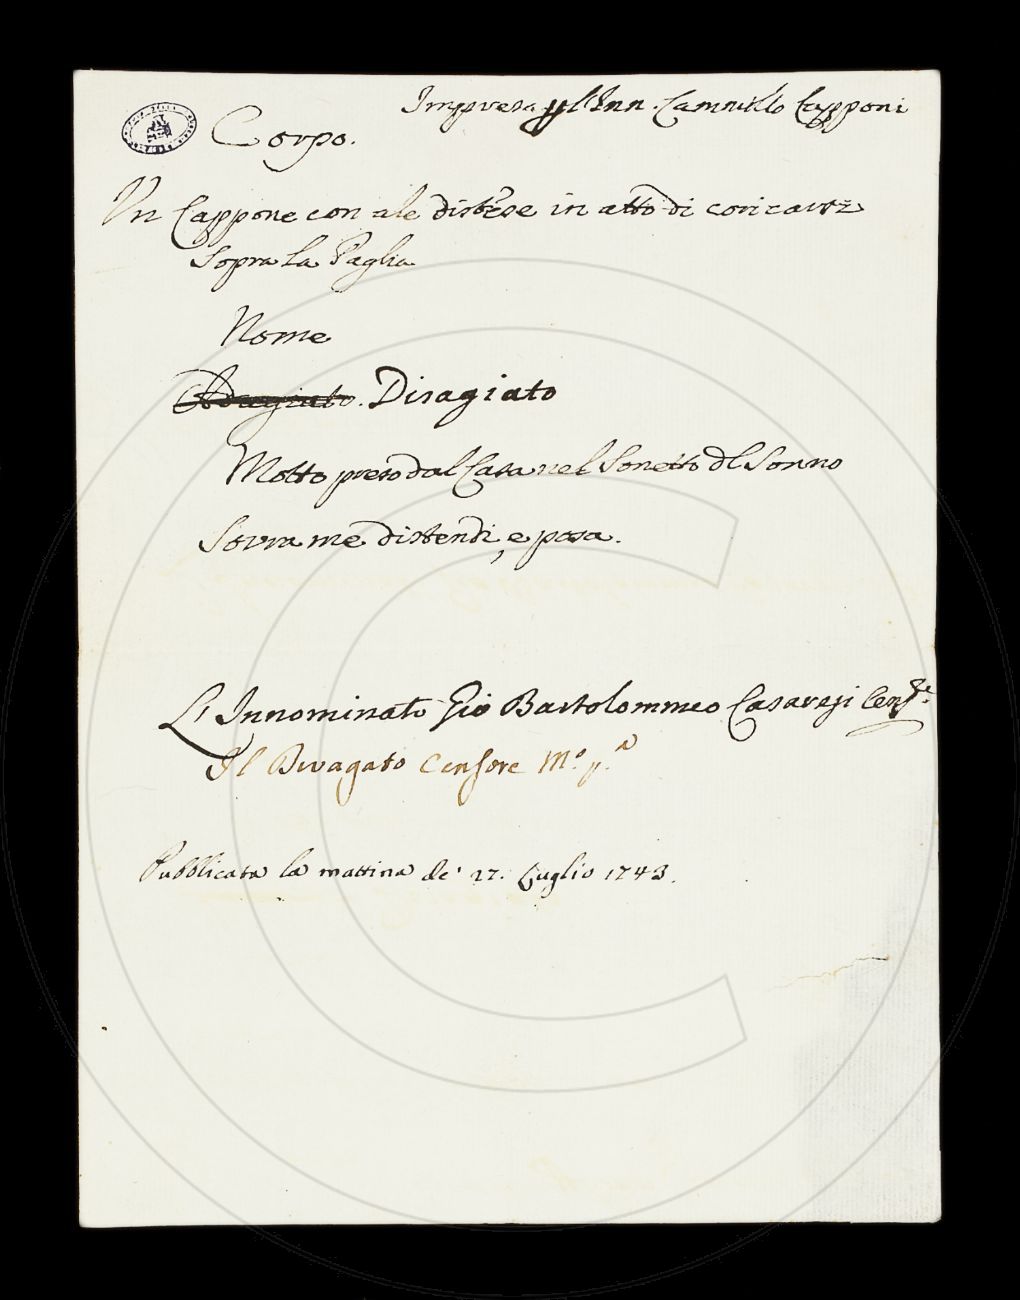 Impresa pl'Inn. Cammillo Capponi
Corpo.
Un Cappone con ale distese in atto di coricarsi
Sopra la Paglia
Nome
Adagiato. Disagiato
Motto preso dal Casa nel Sonetto dl Sonno
Sovra me distendi, e posa.
L'Innominato Gio Bartolommeo Casaregi Cens.re
Il Divagato Censore Mo. p.a
Pubblicata la mattina de' 27. Luglio 1743.